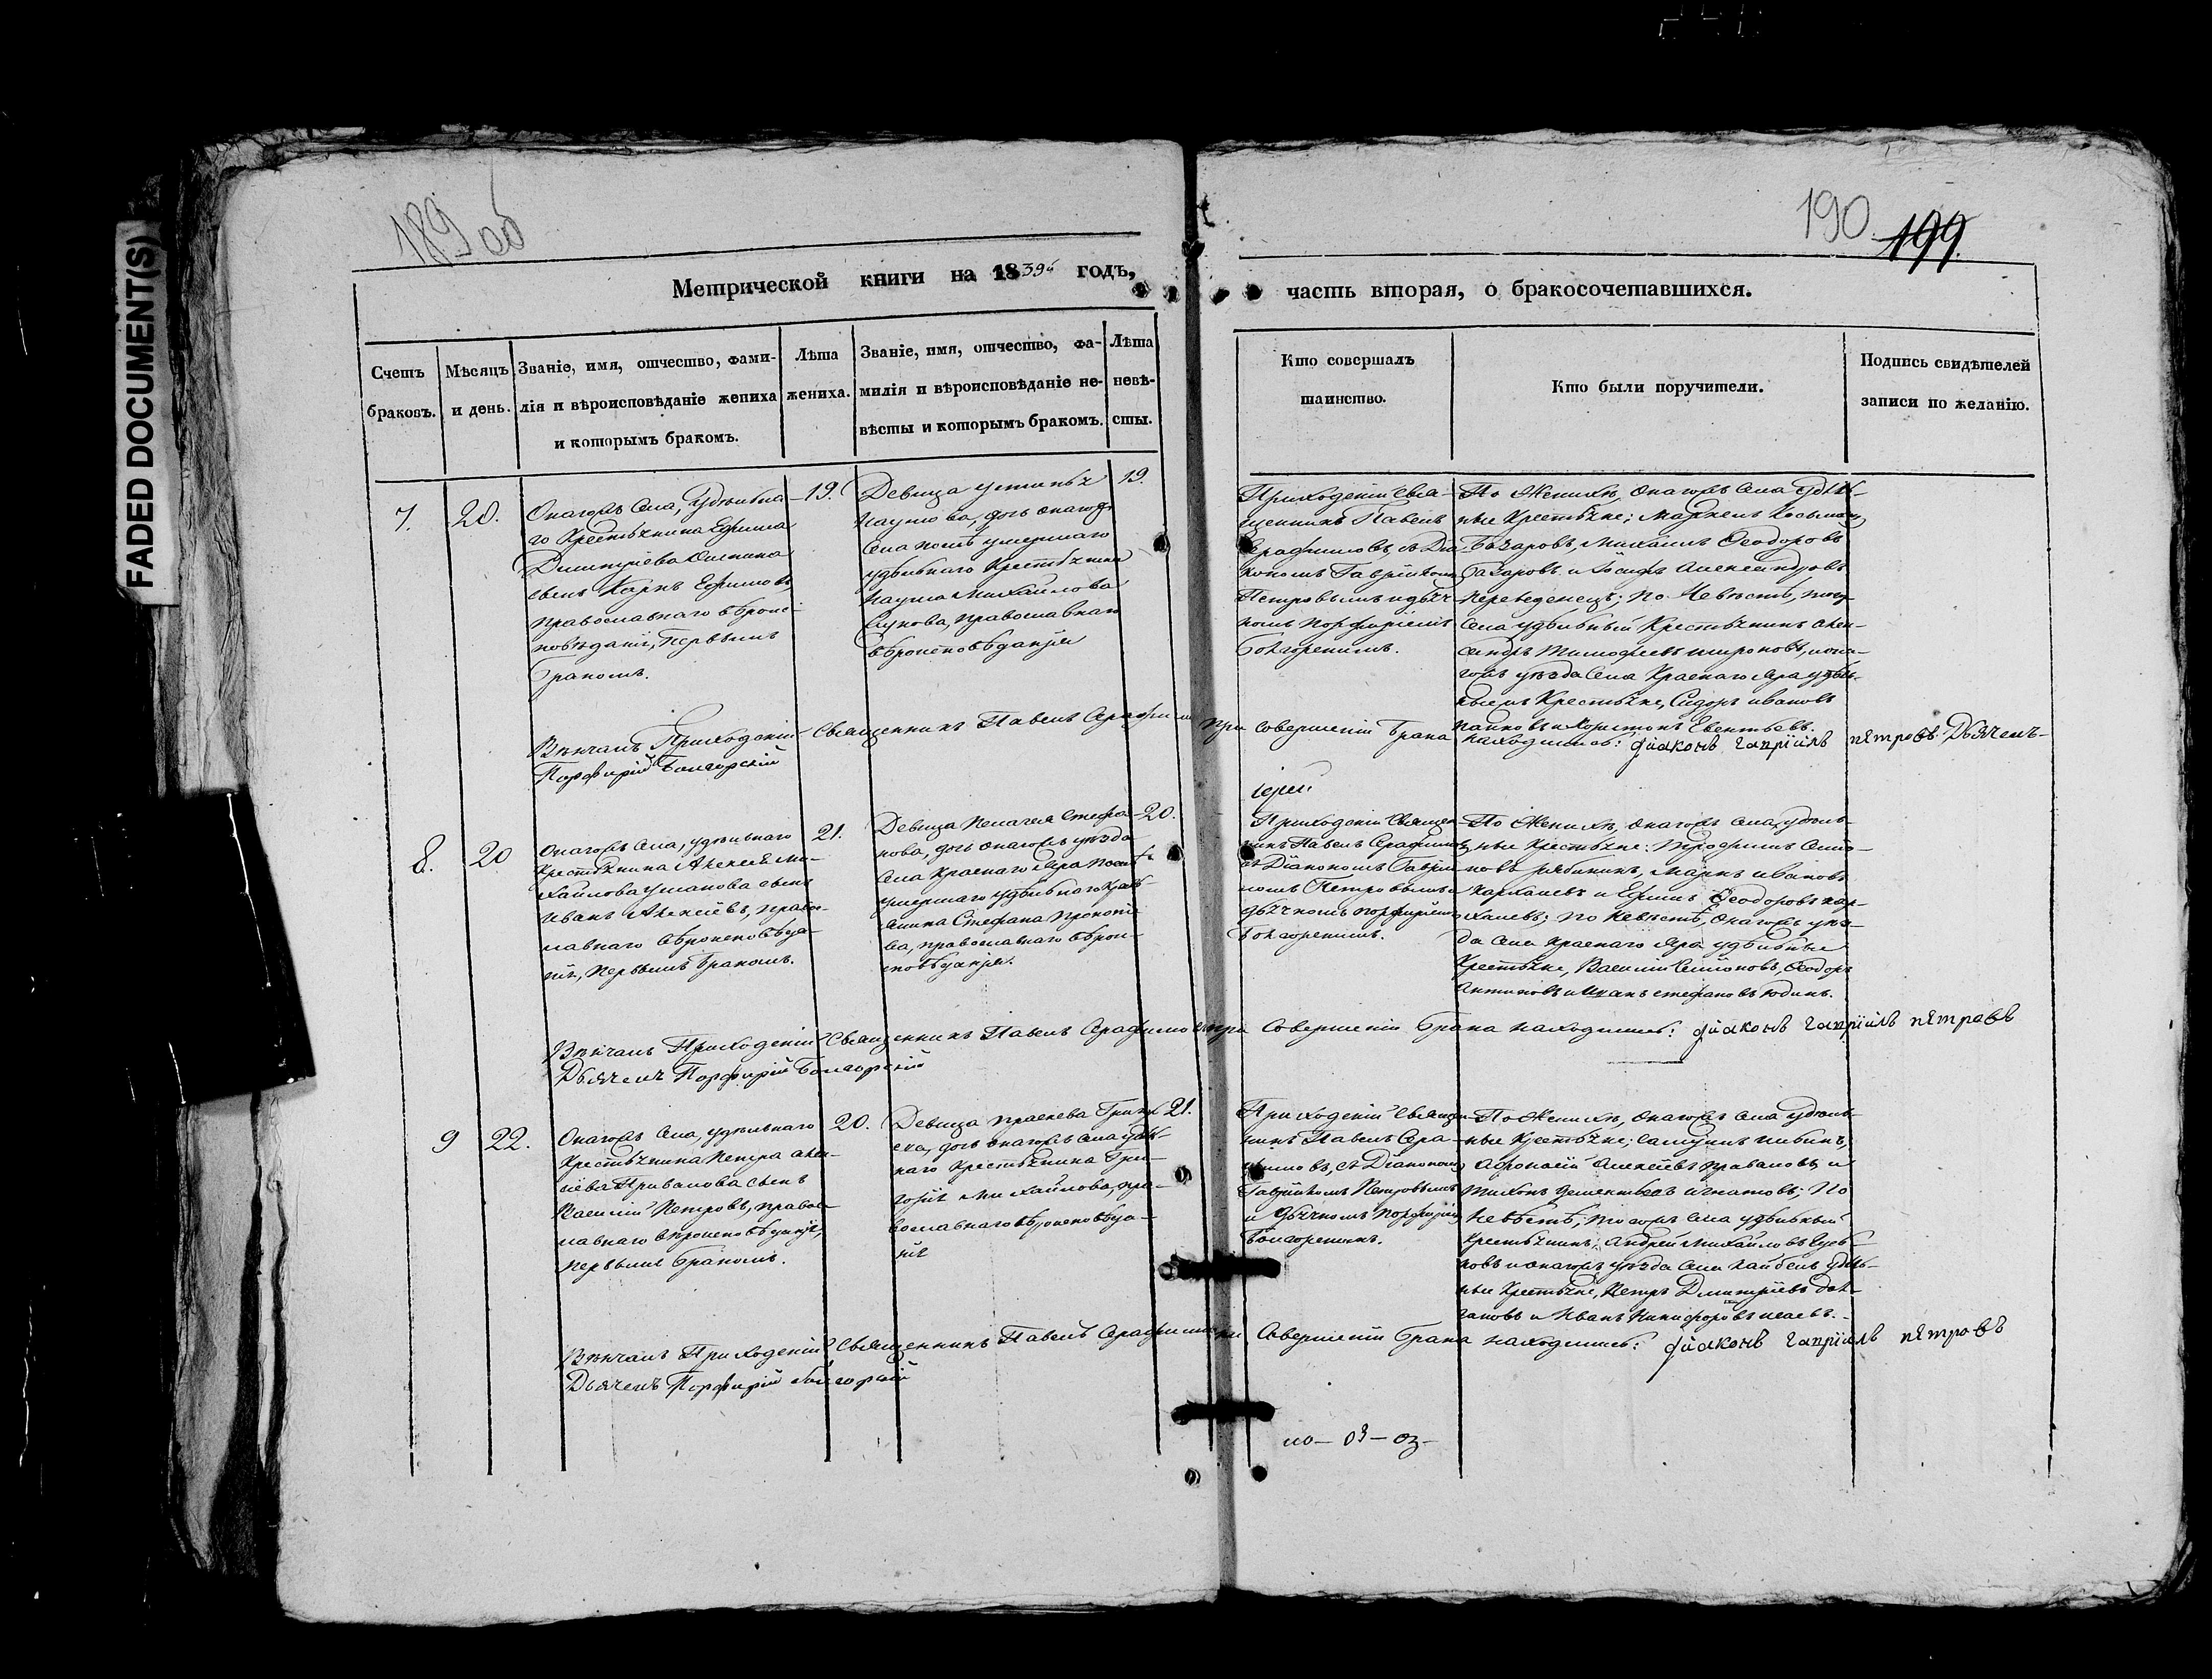 FADED DOCUMENT(S)
189 об
190
199
Метрической книги на 1839й годъ,
часть вторая, о бракосочетавшихся.
Счетъ
браковъ.
Мѣсяцъ
и день.
Званіе, имя, отчество, фами-
лія и вѣроисповѣданіе жениха
и которымъ бракомъ.
Лѣта
жениха.
Званіе, имя, отчество, фа-
милія и вѣроисповѣданіе не-
вѣсты и которымъ бракомъ.
Лѣта
невѣ-
сты.
Кто совершалъ
таинство.
Кто были поручители.
Подпись свидѣтелей
записи по желанію.
7.
20.
Онагожъ села, удѣльна
го Крестьянина Ефима
Димитріева
сынъ Карпъ Ефимовъ,
православнаго вѣроис
повѣданія, первымъ
бракомъ.
19.
Девица
Наумова, дочь онагожъ
села послѣ умершаго
удѣльнаго Крестьянина
Наума Михайлова
православнаго
вѣроисповѣданія
19.
Приходскій Свя-
щенникъ Павелъ
Серафимовъ, съ Діа
кономъ Гавріиломъ
Петровымъ и дьяч-
комъ Порфиріемъ
Болгорскимъ.
По Женихѣ, онагожъ села удѣль-
ные Крестьяне; Маркелъ Косьминъ
Базаровъ, Михаилъ Ѳеодоровъ
Базаровъ и Іосифъ Александровъ
Переведенецъ; по Невѣстѣ, тогожъ
села удѣльный Крестьянинъ Алек-
сандръ Тимофеевъ Широковъ, и она-
гожъ уѣзда села Краснаго Яра удѣль-
ные Крестьяне, Сидоръ Ивановъ
и Харитонъ
Вѣнчалъ Приходскій Священникъ Павелъ Серафимовъ при совершеніи брака находились: діаконъ гавріилъ пѣтровъ Дьячекъ
Порфирій Болгорскій
8.
20
Онагожъ села, удѣльнаго
Крестьянина Алексѣя Ми-
хайлова Ушакова сынъ
Иванъ Алексѣевъ, право-
славнаго вѣроисповѣда-
нія, первымъ бракомъ.
21.
Девица Пелагея Стефа-
нова, дочь онагожъ уѣзда
села Краснаго Яра послѣ
умершаго удѣльнаго Кресть-
янина Стефана Прокопіе
ва, православнаго вѣрои-
сповѣданія.
20.
Приходскій Священ
никъ Павелъ Серафимовъ
съ Діакономъ Гаврии
ломъ Петровымъ и
дьячкомъ Порфиріемъ
Болгорскимъ.
По Женихѣ, онагожъ села удѣль-
ные Крестьяне: Трофимъ Семе-
новъ Рябининъ, Маркъ Ивановъ
и Ефимъ Ѳеодоровъ
по Невѣстѣ, онагожъ уѣз-
да села Краснаго Яра удѣльные
Крестьяне, Василій Семіоновъ, Ѳеодоръ
Антиповъ и Иванъ Стефановъ Юдинъ.
Вѣнчалъ Приходскій Священникъ Павелъ Серафимовъ при Совершеніи брака находились: діаконъ гавріилъ пѣтровъ
Дьячекъ Порфирій Болгорскій
9
22.
Онагожъ села, удѣльнаго
Крестьянина Петра Алек-
сіева Привалова сынъ
Василій Петровъ, правос-
лавнаго вѣроисповѣданія,
первымъ бракомъ.
20.
Девица Праскева Григо
ева, дочь онагожъ села удѣль-
наго Крестьянина Гри-
горія Михайлова, пра-
вославнаго вѣроисповѣда-
нія
21.
Приходскій Священ-
никъ Павелъ Сера-
фимовъ, съ Діакономъ
Гавріиломъ Петровымъ
и Дьячкомъ Порфиріем
Болгорскимъ.
По Женихѣ, онагожъ села удѣль-
ные Крестьяне;
Афонасій Алексѣевъ Приваловъ и
Тихонъ Дементьевъ Игнатовъ; По
Невѣстѣ; тогожъ села удѣльный
Крестьянинъ, Андрей Михайловъ
и онагожъ уѣзда села Кайбелъ удѣль-
ные Крестьяне, Петръ Дмитріевъ
и Иванъ Никифоровъ Исаевъ.
Вѣнчалъ Приходскій Священникъ Павелъ Серафимовъ при Совершеніи брака находились: діаконъ гавріилъ пѣтровъ
Дьячекъ Порфирій Болгорскій